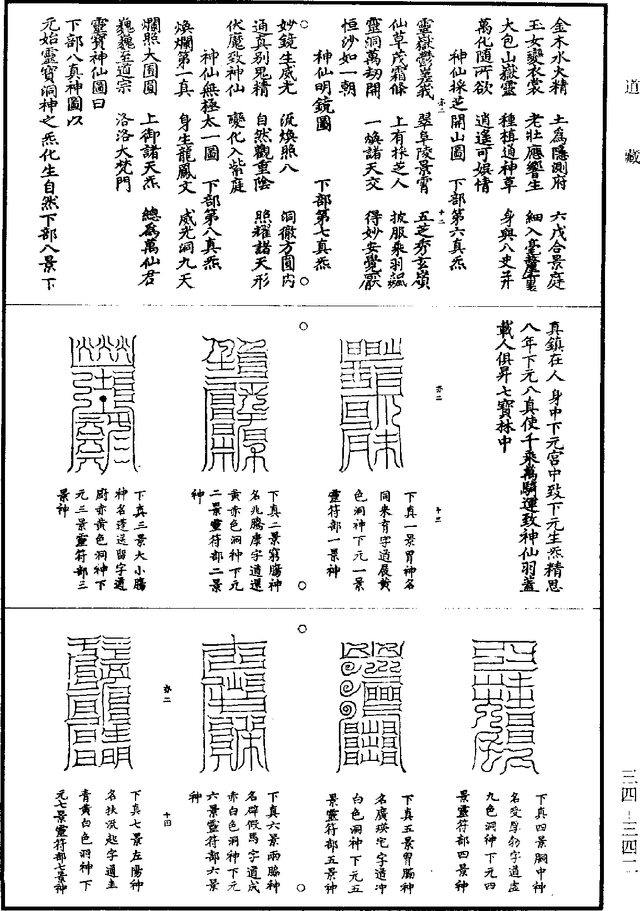 道藏
金木水火精　土為隱測府　六戊合景庭
玉女變衣裳　老壯應響生　細入毫釐裏
大包山嶽靈　種植道神草　身與八史并
萬化隨所欲　逍遙可娛情
神仙採芝開山圖　下部第六真炁
靈嶽鬱嵳峩　翠阜陵景霄　五芝秀玄嶺
仙草茂霜條　上有採芝人　披服乘羽飈
靈洞萬劫開　一煥諸天交　得妙安覺厭
恒沙如一朝
神仙明鏡圖　下部第七真炁
妙鏡生威光　流煥照八　洞徹方圓內
通真別鬼精　自然觀重陰　照耀諸天形
伏魔致神仙　變化入紫庭
神仙無極太一圖　下部第八真炁
煥爛第一真　身生龍鳳文　威光洞九天
爛照大圓圓　上御諸天炁　總為萬仙君
巍巍至道宗　洛洛大梵門
靈寶神仙圖曰
下部八真神圖以
元始靈寶洞神之炁化生自然下部八景下
真鎮在人身中下元宮中致下元生炁精思
八年下元八真使千乘萬騎運致神仙羽蓋
載人俱昇七寶林中
下真一景胃神名
同來育字道展黃
色洞神下元一景
靈符部一景神
下真二景窮腸神
名兆騰康字道還
黃赤色洞神下元
二景靈符部二景
神
下真三景大小腸
神名蓬送留字道
廚赤黃色洞神下
元三景靈符部三
景神
下真四景胴中神
名受厚勃字道虛
九色洞神下元四
景靈符部四景神
下真五景胃膈神
名廣瑛宅字道沖
白色洞神下元五
景靈符部五景神
下真六景兩脇神
名辟假馬字道成
赤白色洞神下元
六景靈符部六景
神
下真七景左陽神
名扶流起字道圭
青黃白色洞神下
元七景靈符部七景神
三四－三四二